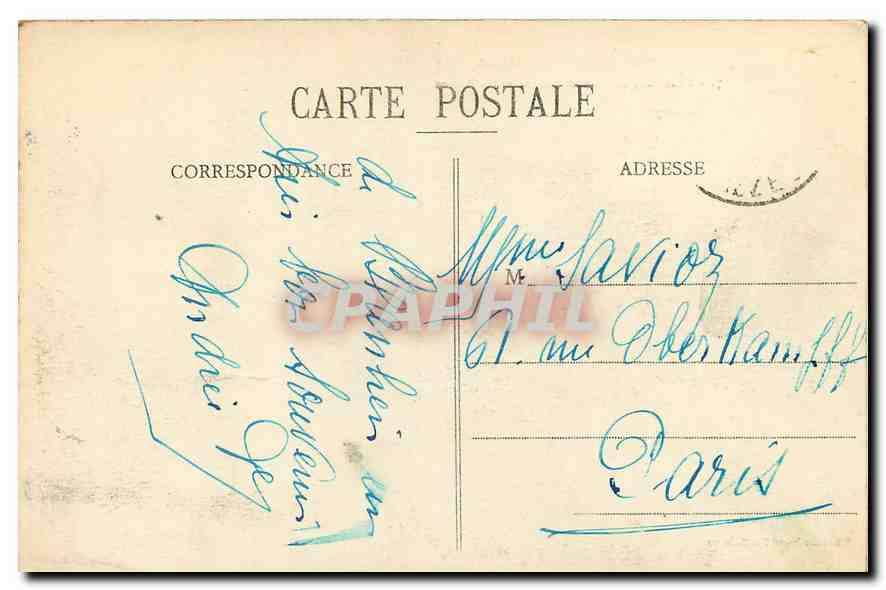 CARTE POSTALE
CORRESPONDANCE
ADRESSE
de un
bon souvenir
André
M Mme Savioz
61. rue Oberkampff
Paris
CPAPHIL